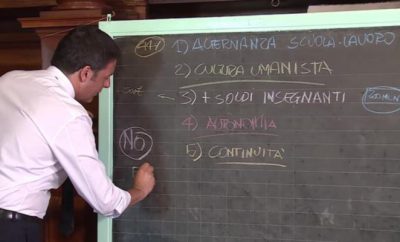 1) ALTERNANZA SCUOLA-LAVORO
2) CULTURA UMANISTA
3) + SOLDI INSEGNANTI
4) AUTONOMIA
5) CONTINUITÀ
NO